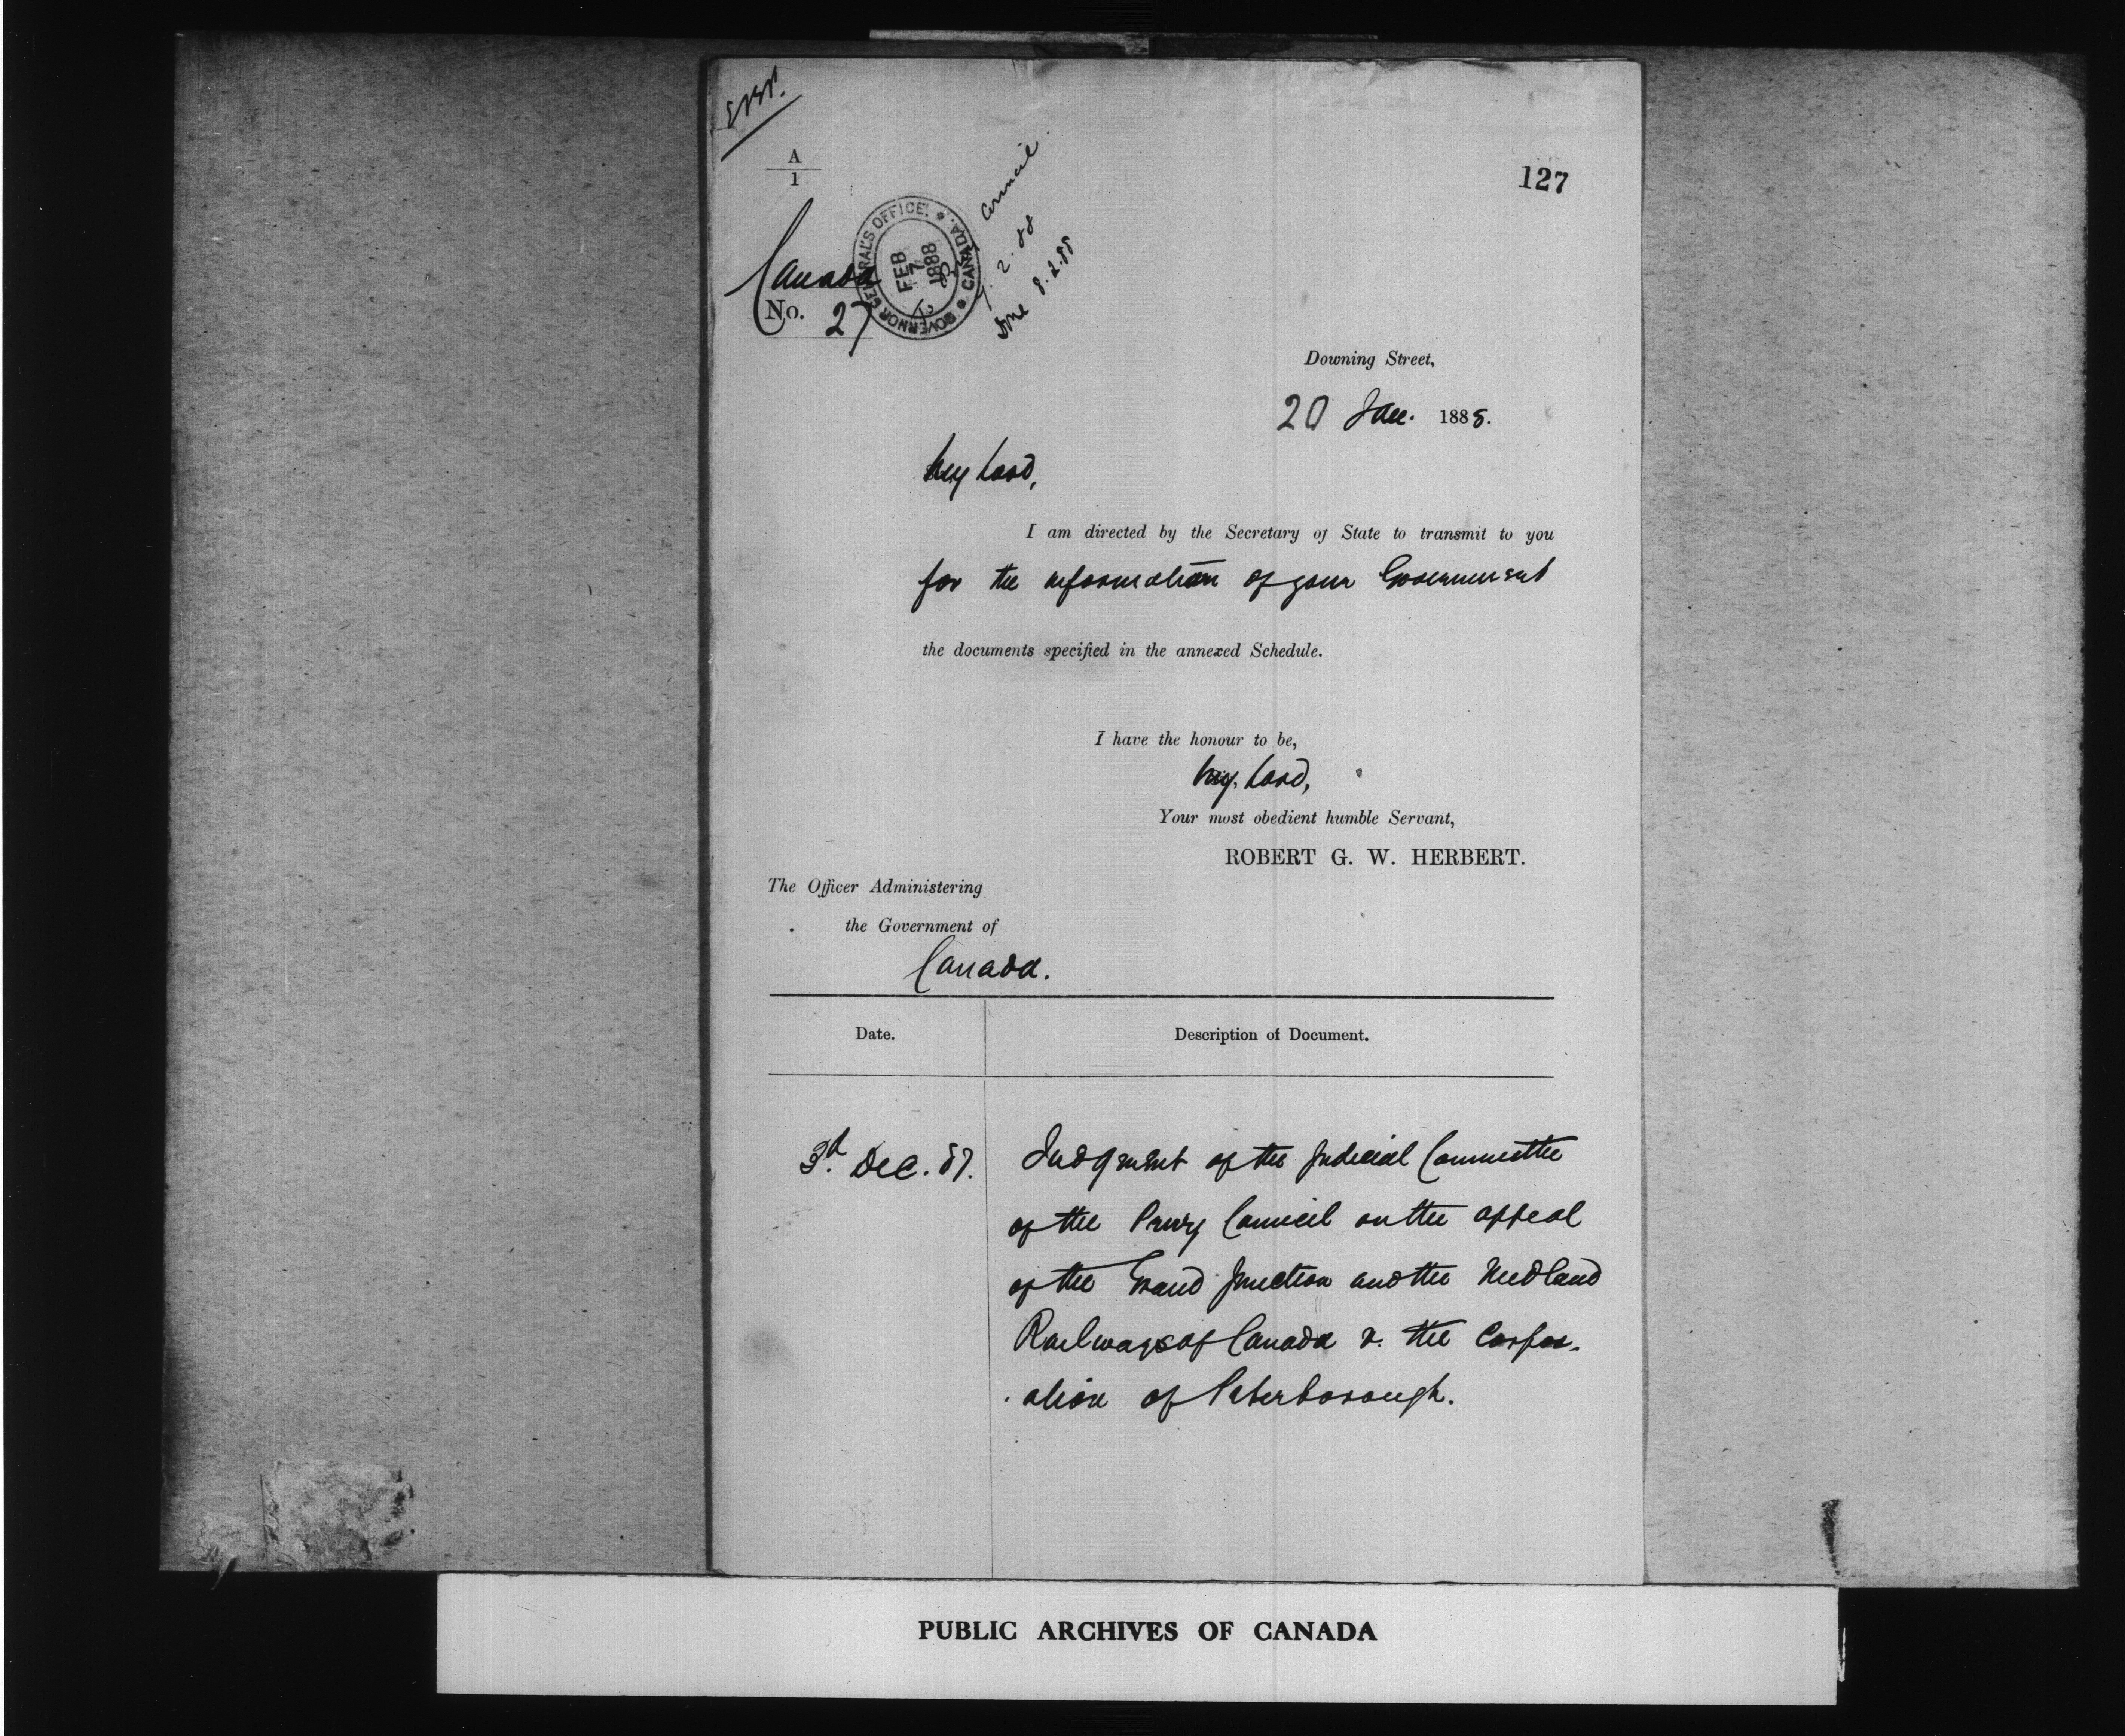 A
1
127
Canada
No. 27
GOVERNOR GENERAL'S OFFICE. * CANADA. *
FEB
7
1888
Council
7. 2. 88
Done 8.2.88
Downing Street,
20 Jan. 1888.
My Lord,
I am directed by the Secretary of State to transmit to you
for the information of your Government
the documents specified in the annexed Schedule.
I have the honour to be,
My Lord,
Your most obedient humble Servant,
ROBERT G. W. HERBERT.
The Officer Administering
the Government of
Canada.
Date.
Description of Document.
3d. Dec. 87.
Judgment of the Judicial Committee
of the Privy Council on the appeal
of the Grand Junction and the Midland
Railways of Canada v. the Corpor-
ation of Peterborough.
PUBLIC ARCHIVES OF CANADA